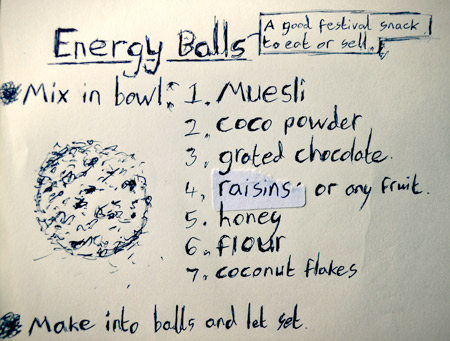 Energy Balls
A good festival snack
to eat or sell.
Mix in bowl: 1. Muesli
2. coco powder
3. grated chocolate.
4. raisins or any fruit.
5. honey
6. flour
7. coconut flakes
Make into balls and let set.